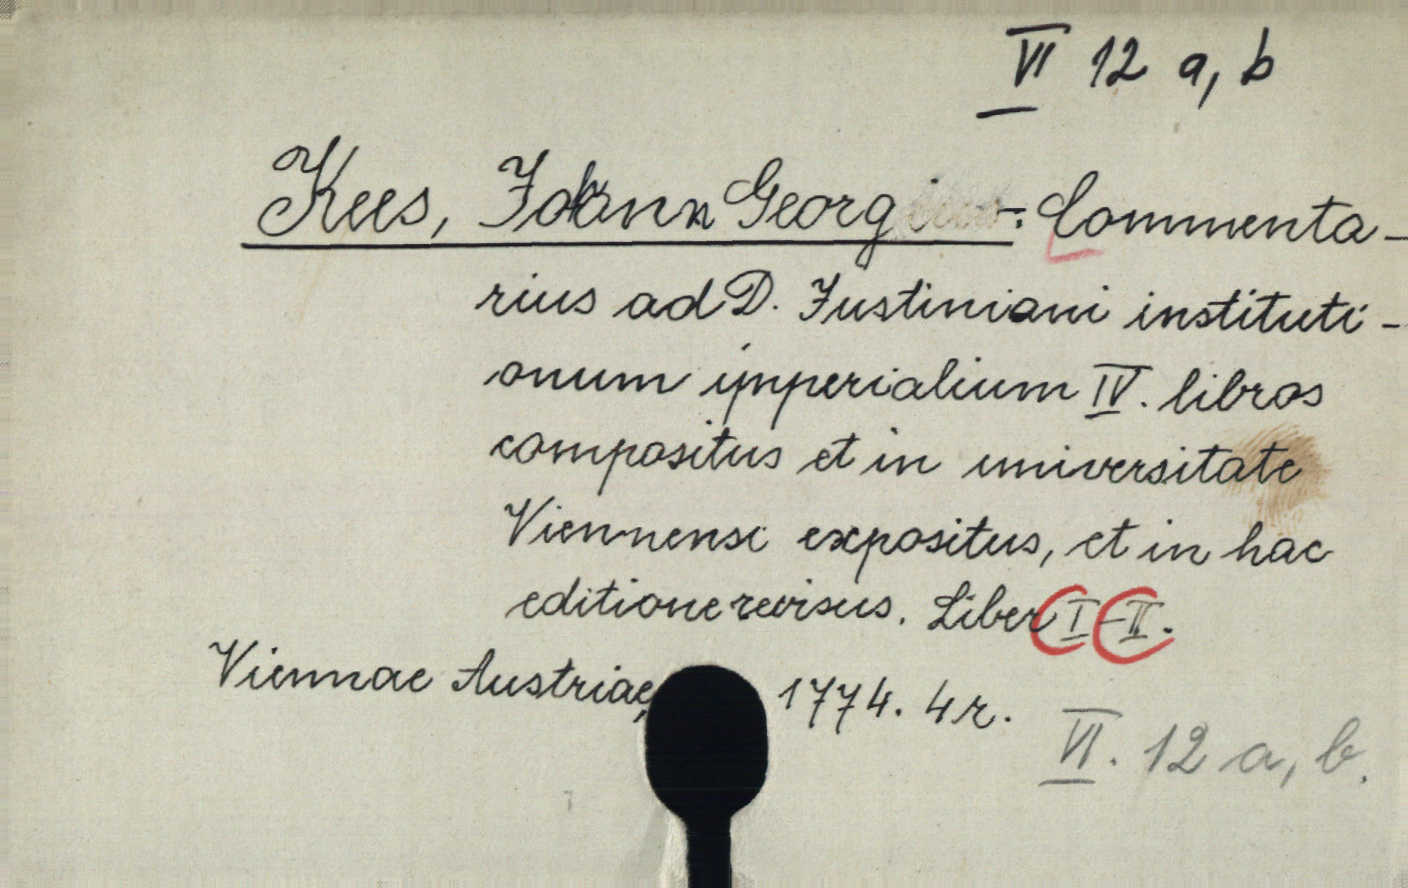 VI 12 a, b
Kees, Johann Georg: Commenta-
rius ad D. Justiniani instituti-
onum imperialium IV. libros
compositus et in universitate
Viennensi expositus, et in hac
editione revisus. Liber I-II.
Viennae Austriae, 1774. 4r.
VI. 12 a, b.